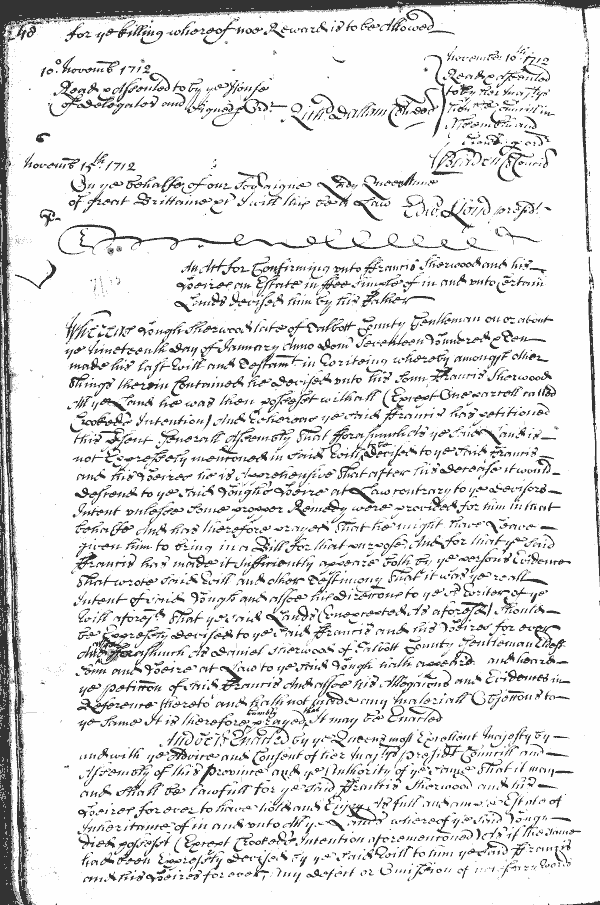 48 for ye killing whereof noe Reward is to be Allowed
10o. Novemb 1712
Read & assented to by ye House
of delegates and Signed p Ordr.
Richd. Dallam Cl Ho: del
November 10th 1712
Read & assented
to by her Majtys
hble Councill in
Assembly and
Signed p ord
WBladen Cl Concil
6
Novemb 15th. 1712
On ye behalfe of our Sovraigne Lady Queen Anne
of Great Brittaine &c I will this be a Law Edwd. Lloyd presidt.
An Act for Confirming unto ffrancis Sherwood and his
Heires an Estate in ffee Simple of in and unto Certain
Lands devised him by his ffather
Whereas Hough Sherwood late of Talbott County Gentleman on or about
ye Nineteenth day of January Anno dom: Seventeen Hundred & Ten
made his last Will and Testamt. in Writeing whereby amongst other
things therein Contained he devised unto his Sonn ffrancis Sherwood
All ye Land he was then possest withall (Except One parcell called
Crooked Intention) And Whereas ye said ffrancis has petitioned
this psent Generall Assembly That fforasmuch As ye said Land is
not Expressely mentioned in said Will to be devised to ye said ffrancis
and his Heires he is Apprehensive That after his decease it would
descend to ye said Hough's Heire at Law contrary to ye devisors
Intent unlesse Some propper Remedy were provided for him in that
behalfe And has therefore prayed That he might have Leave
given him to bring in a Bill for that purpose And for that ye said
ffrancis has made it Sufficiently appeare both by ye persons Evidence
That wrote said Will and other Testimony That it was ye reall
Intent of said Hough and alsoe his directions to ye Writer of ye
Will aforesd. That ye said Lands (Excepted As aforesd.) Should
be Expressly devised to ye said ffrancis and his Heires for ever
And fforasmuch As daniel Sherwood of Talbott County Gentleman Eldest
Sonn and Heire at Law to ye said Hough hath appeard and heard
ye petition of said ffrancis And alsoe his Allegations and Evidences in
Reference thereto and hath not made any materiall Objections to
ye same It is therefore humbly prayed that It may be Enacted
And be it Enacted by ye Queens most Excellent Majesty by
and with ye Advice and Consent of her Majtys presidt. Councill and
Assembly of this Province and ye Authority of ye same That it may
and Shall be lawfull for ye said ffrancis Sherwood and his
Heires for ever to have hold and Enjoy As full and ample Estate of
Inheritance of in and unto All ye Lands whereof ye said Hough
died possest (Except Crooked Intention aforementioned) As if the same
had been Expressly devised by ye said Will to him ye said ffrancis
and his Heires for ever, Any defect or Omission of necessary words